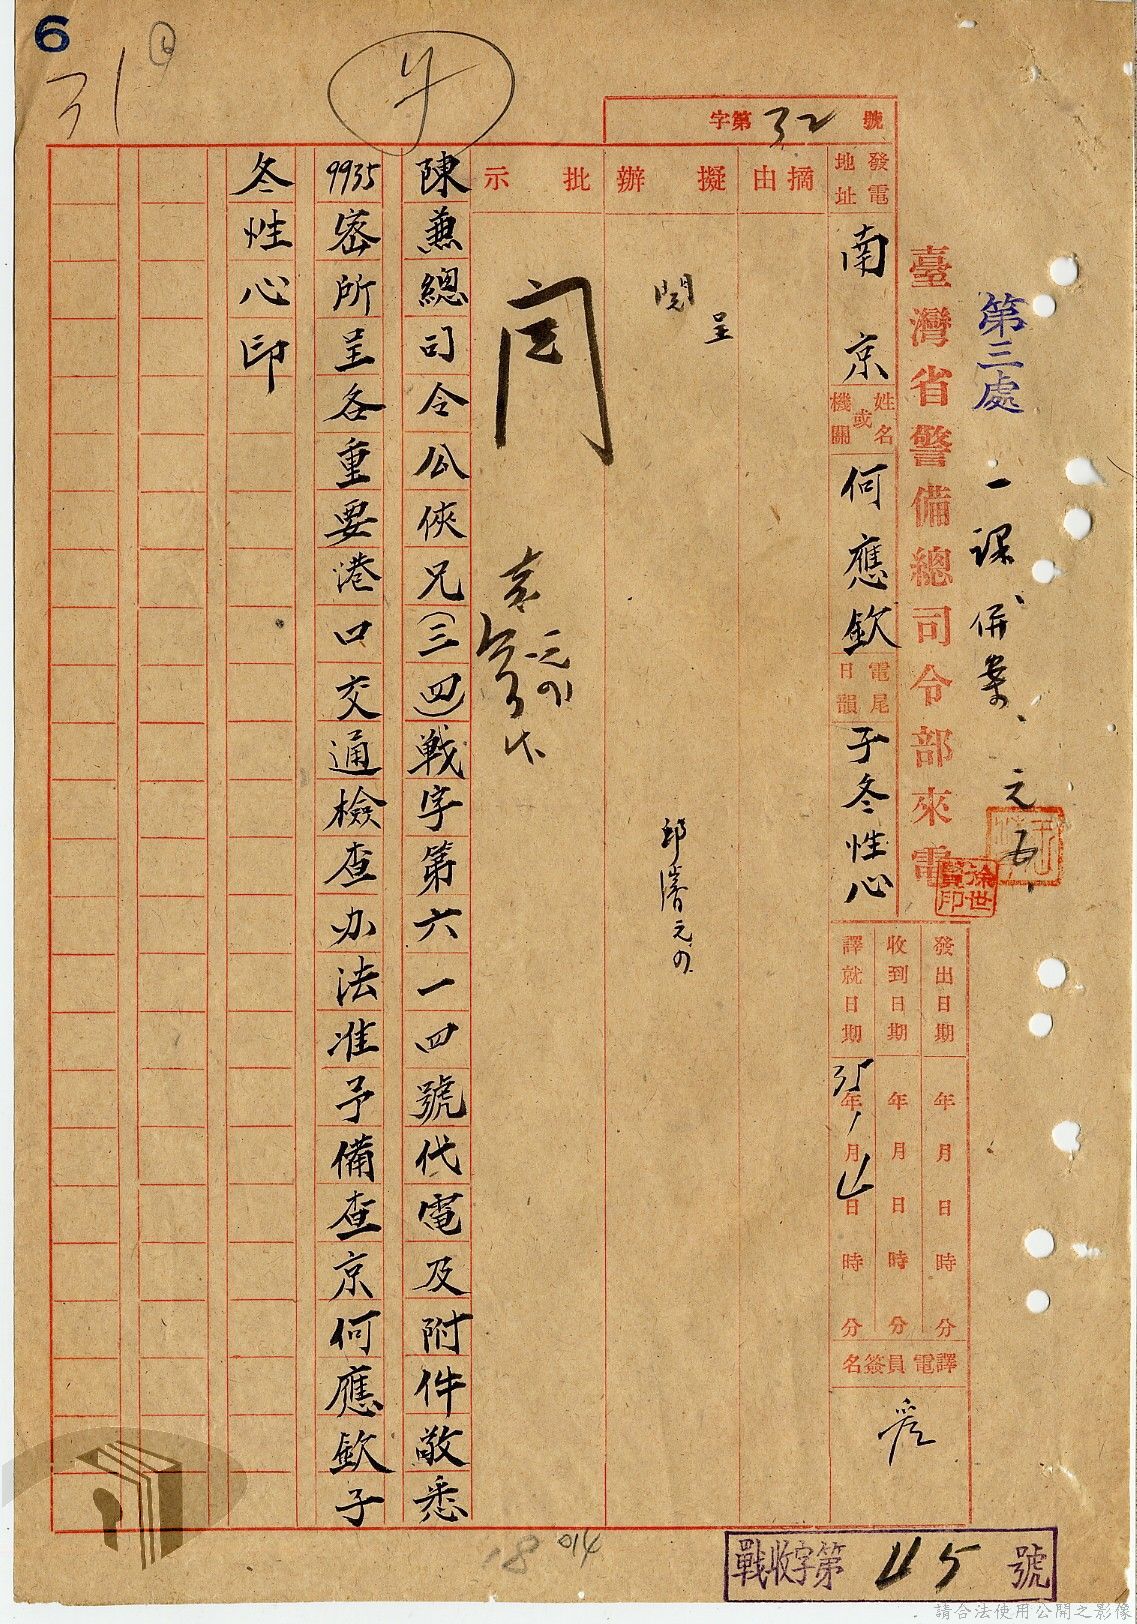 6
字第32號
第三處
一課併案、元五、
臺灣省警備總司令部來電
徐世賢印
發電地址
南京
姓名或機關
何應欽
電尾日韻
子冬性心
發出日期 年 月 日 時 分
收到日期 年 月 日 時 分
譯就日期 35年 1月 4日 時 分
譯電員簽名
摘由
擬辦
呈
閱
邱濬元の
批示
陳兼總司令公俠兄(三四)戰字第六一一四號代電及附件敬悉
9935密所呈各重要港口交通檢查办法准予備查京何應欽子
冬性心印
18
014
戰收字第45號
請合法使用公開之影像